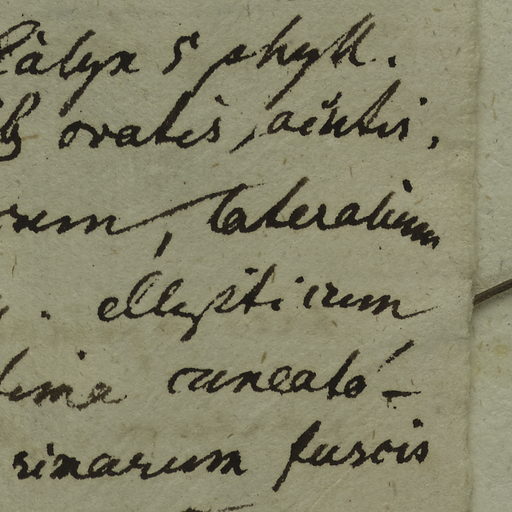 Calyx 5 phyll.
ovatis, acutis,
rum, lateralium
. ellypticum
cuneato-
rinarum fuscis